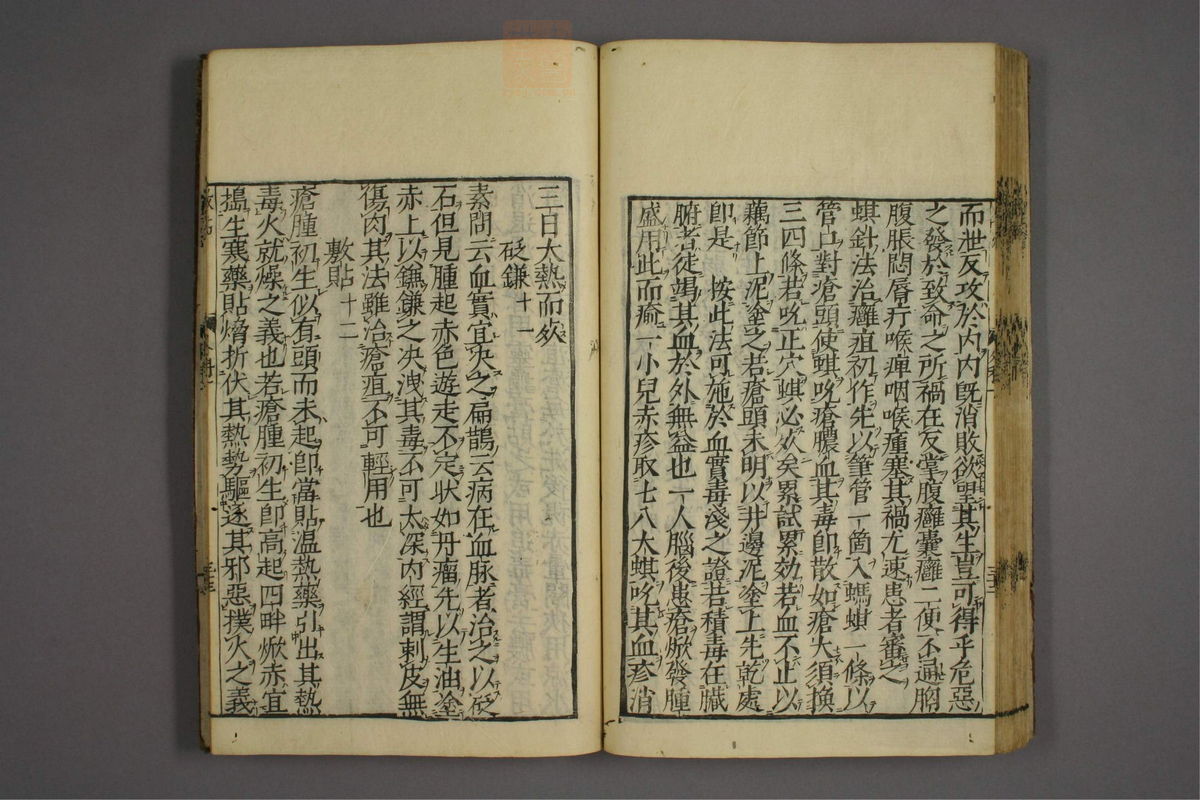 而泄反攻於内内既消敗欲望其生豈可得乎危惡
之發於致命之所禍在反掌腹癰囊癰二便不通胸
腹脹悶脣疔喉痺咽喉腫塞其禍尤速患者審之
蜞針法治癰疽初作先以筆管一箇入螞蜞一條以
管口對瘡頭使蜞吮瘡膿血其毒即散如瘡大須換
三四條若吮正穴蜞必死矣累試累効若血不止以
藕節上泥塗之若瘡頭未明以井邊泥塗上先乾處
即是 按此法可施於血實毒淺之證若積毒在臟
腑者徒竭其血於外無益也一人腦後患瘡焮發腫
盛用此而癒一小兒赤疹取七八大蜞吮其血疹消
三日大熱而歿
砭鎌十一
素問云血實宜決之扁鵲云病在血脉者治之以砭
石但見腫起赤色遊走不定状如丹瘤先以生油塗
赤上以鎌鎌之決洩其毒不可太深内經謂刺皮無
傷肉其法雖治瘡疽不可輕用也
敷貼十二
瘡腫初生似有頭而未起即當貼温熱藥引出其熱
毒火就燥之義也若瘡腫初生即高起四畔焮赤宜
搗生寒藥貼熁折伏其熱勢驅逐其邪惡撲火之義